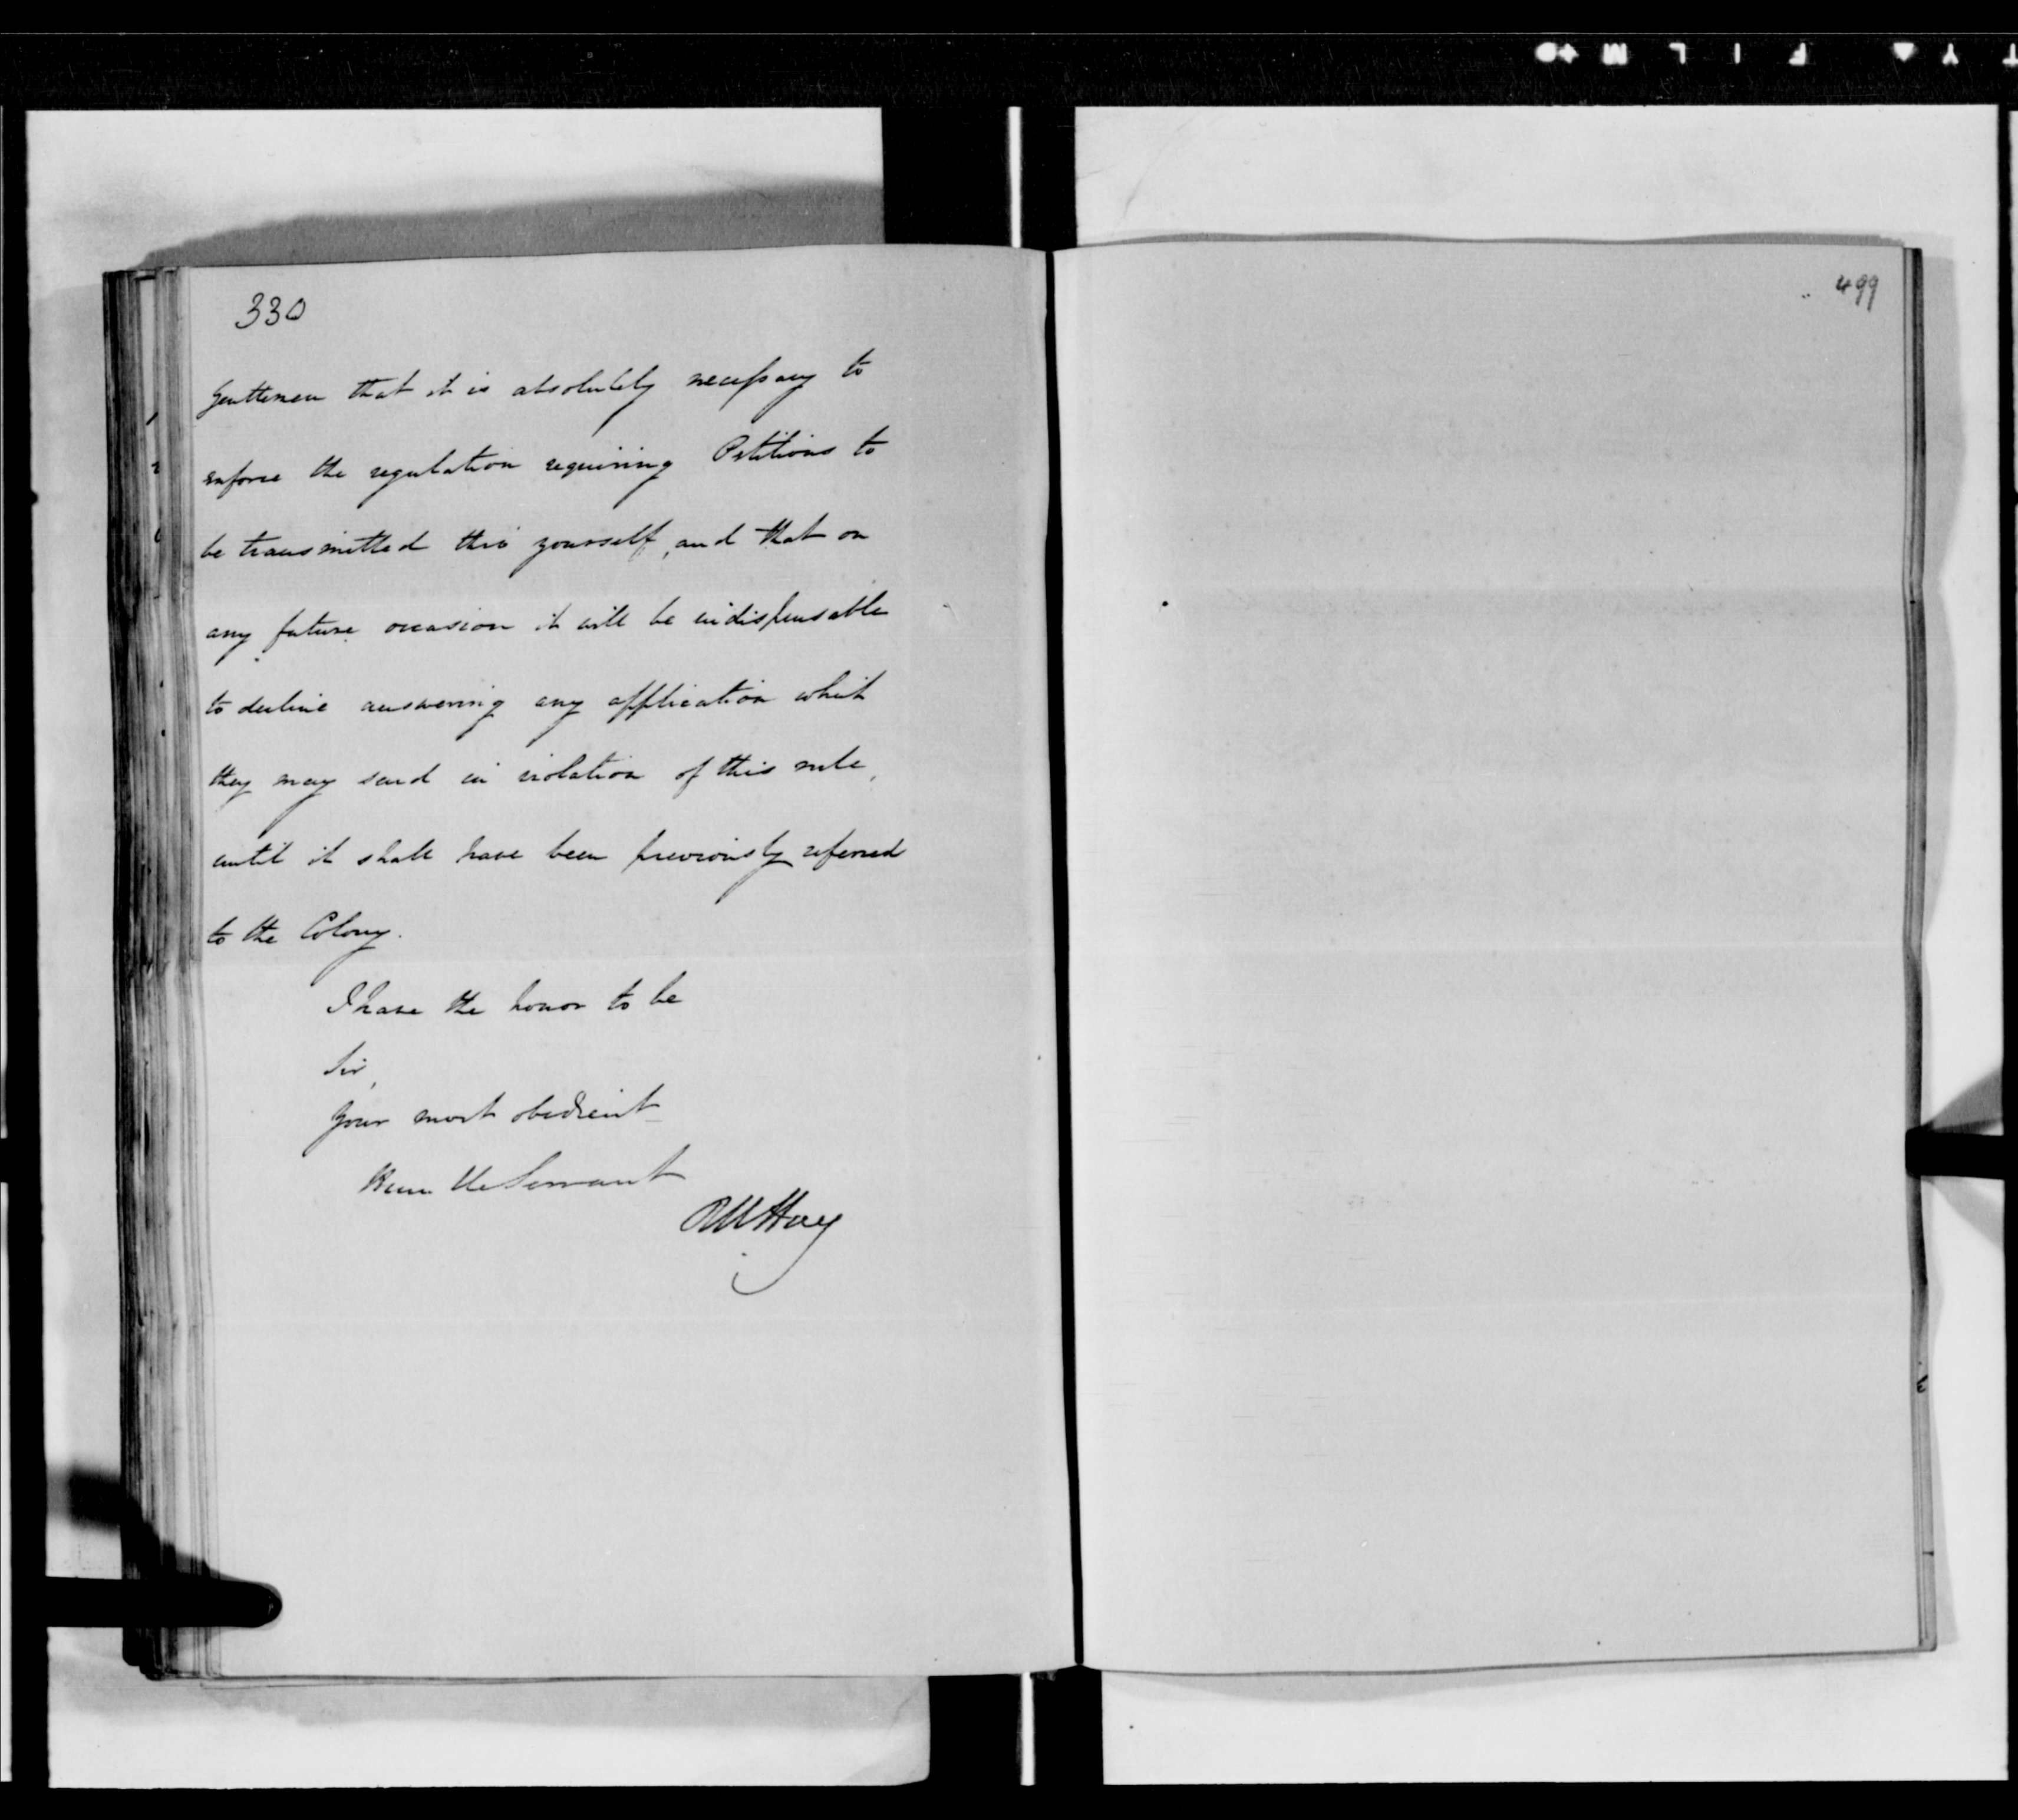 330
Gentlemen that it is absolutely necessary to
enforce the regulation requiring Petitions to
be transmitted thro' yourself, and that on
any future occasion it will be indispensable
to decline answering any application which
they may send in violation of this rule,
until it shall have been previously referred
to the Colony.
I have the honor to be
Sir,
Your most obedient
Humble Servant
RW Hay
499